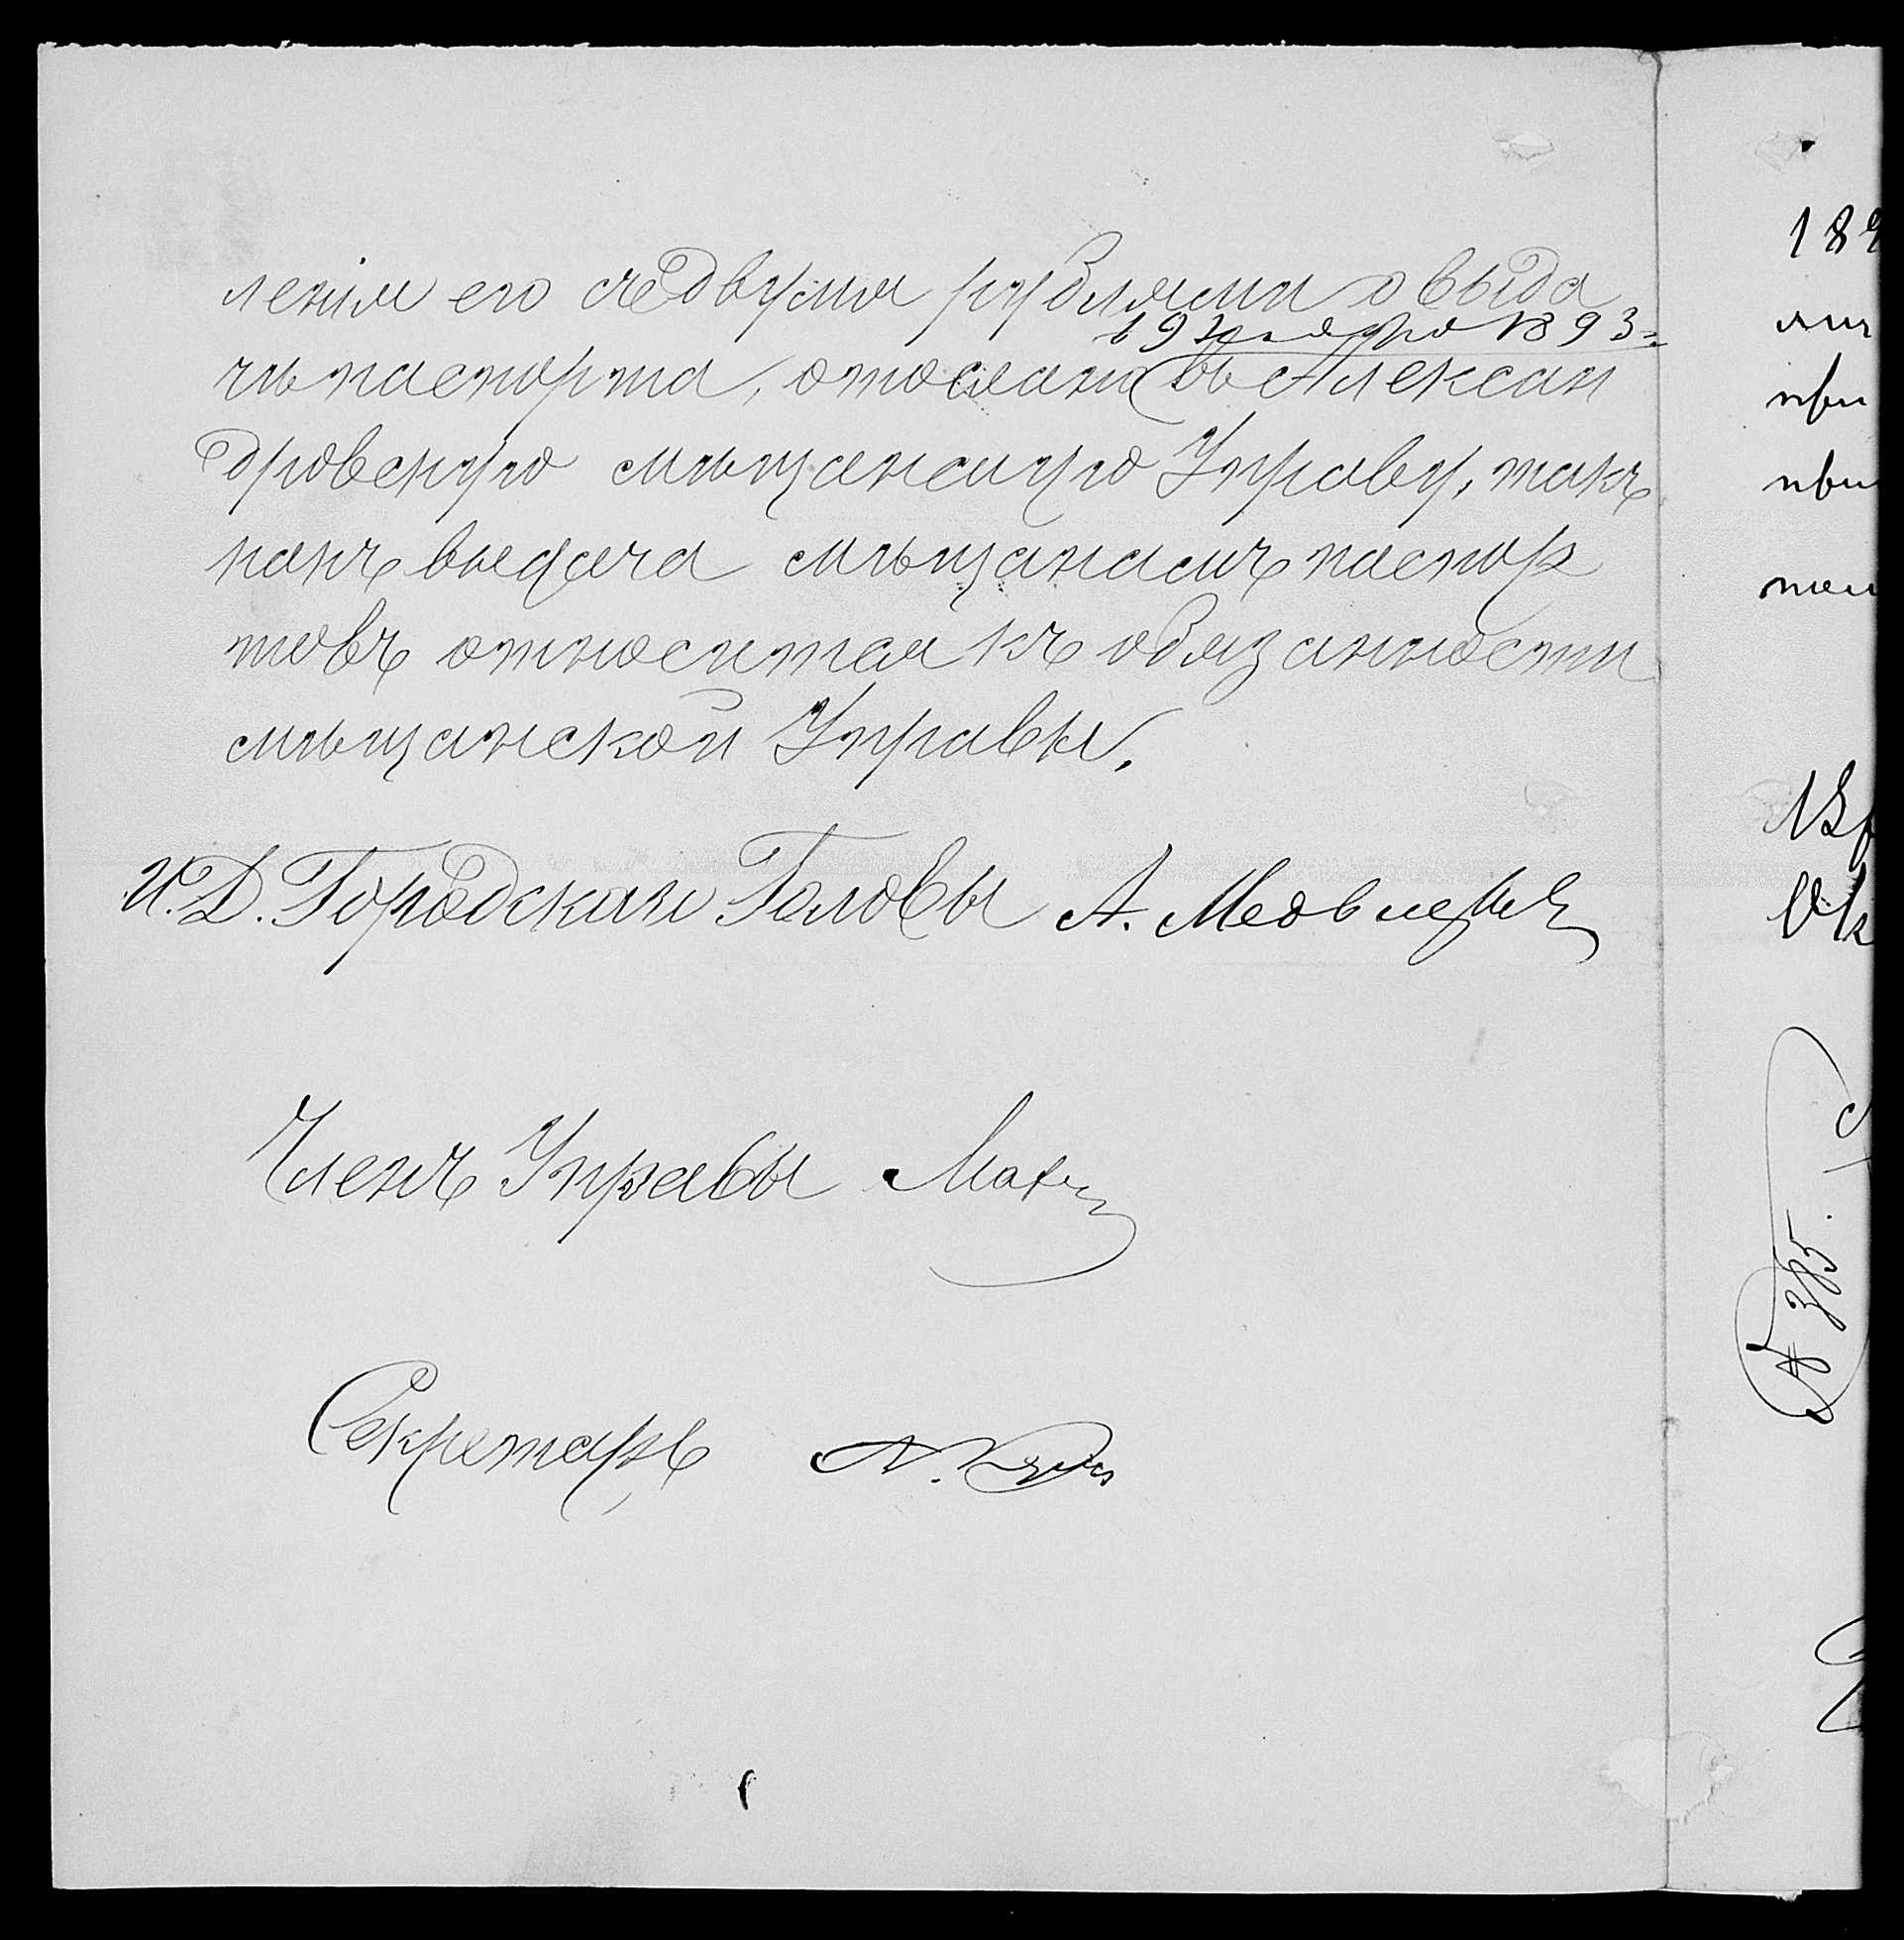 ленія его съ двумя рублями о выда
19 ноября 1893 г.
чѣ паспорта, отослано въ Алексан
дровскую мѣщанскую Управу, такъ
какъ выдача мѣщанамъ паспор
товъ относится къ обязанности
мѣщанской Управы.
И. Д. Городскаго Головы А. Медвѣдевъ
Членъ Управы
Секретарь
189
№ 385.